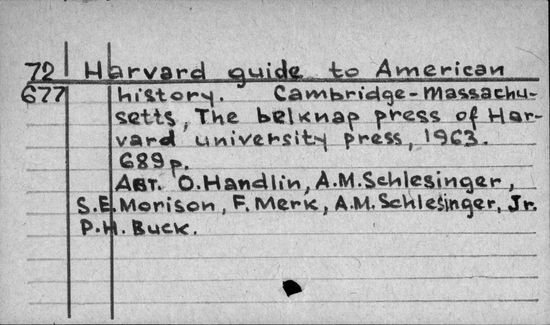 72 Harvard guide to American
677 history. Cambridge-Massachu-
setts, The belknap press of Har-
vard university press, 1963.
689 p.
Авт. O.Handlin, A.M.Schlesinger,
S.E.Morison, F.Merk, A.M.Schlesinger, Jr.
P.H.Buck.